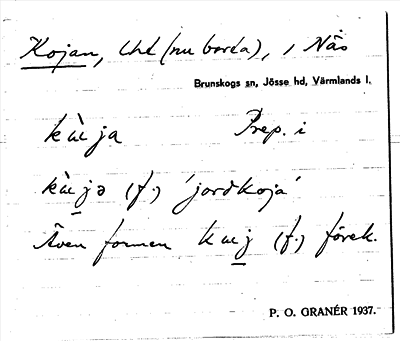 Kojan, Lht (nu borta), i Näs
Brunskogs sn, Jösse hd, Värmlands l.
kɯ̀ja Prep. i
kɯ̀jə (f.) 'jordkoja'
Även formen kɯj (f.) förek.
P. O. GRANÉR 1937.